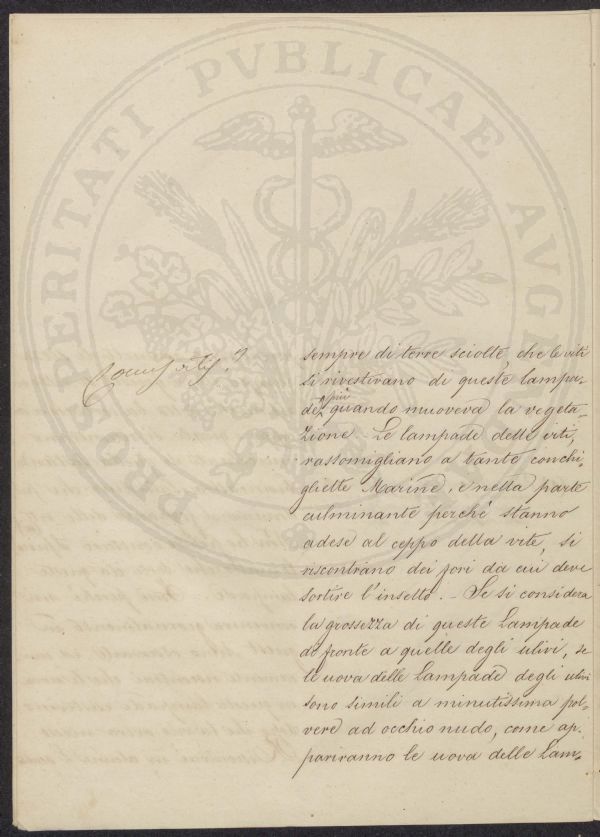 PROSPERITATI PVBLICAE AVGE
sempre di terre sciolte, che le viti
si rivestirano di queste lampa-
de, più quando muoverà la vegeta-
zione. Le lampade delle viti,
rassomigliano a tante conchi-
gliette Marine, e nella parte
culminante perché stanno
adese al ceppo della vite, si
riscontrano dei fori da cui deve
sortire l'insetto. - Se si considera
la grossezza di queste Lampade
di fronte a quelle degli ulivi, se
le uova delle Lampade degli ulivi
sono simili a minutissima pol-
vere ad occhio nudo, come ap-
pariranno le uova delle Lam-